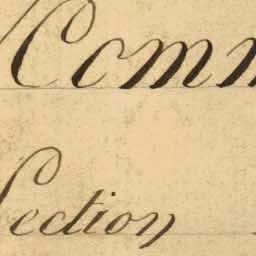 Comm
Section